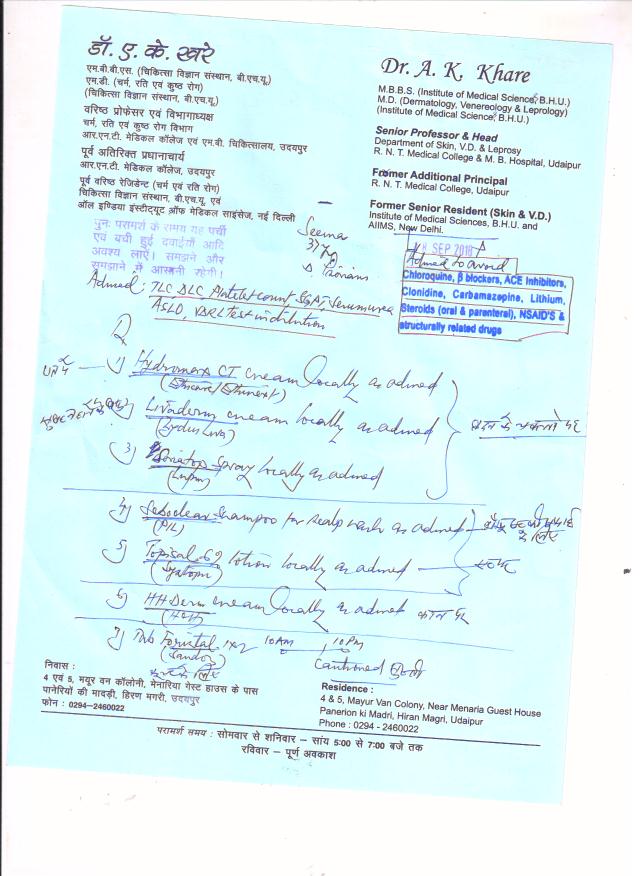 डॉ. ए. के. खरे
एम.बी.बी.एस. (चिकित्सा विज्ञान संस्थान, बी.एच.यू.)
एम.डी. (चर्म, रति एवं कुष्ठ रोग)
(चिकित्सा विज्ञान संस्थान, बी.एच.यू.)
वरिष्ठ प्रोफेसर एवं विभागाध्यक्ष
चर्म, रति एवं कुष्ठ रोग विभाग
आर.एन.टी. मेडिकल कॉलेज एवं एम.बी. चिकित्सालय, उदयपुर
पूर्व अतिरिक्त प्रधानाचार्य
आर.एन.टी. मेडिकल कॉलेज, उदयपुर
पूर्व वरिष्ठ रेजिडेन्ट (चर्म एवं रति रोग)
चिकित्सा विज्ञान संस्थान, बी.एच.यू. एवं
ऑल इण्डिया इंस्टीट्यूट ऑफ मेडिकल साइंसेज, नई दिल्ली
Dr. A. K. Khare
M.B.B.S. (Institute of Medical Science, B.H.U.)
M.D. (Dermatology, Venereology & Leprology)
(Institute of Medical Science, B.H.U.)
Senior Professor & Head
Department of Skin, V.D. & Leprosy
R. N. T. Medical College & M. B. Hospital, Udaipur
Former Additional Principal
R. N. T. Medical College, Udaipur
Former Senior Resident (Skin & V.D.)
Institute of Medical Sciences, B.H.U. and
AIIMS, New Delhi.
पुनः परामर्श के समय यह पर्ची
एवं बची हुई दवाईयाँ आदि
अवश्य लाएं। समझने और
समझाने में आसानी रहेगी।
Seema
SEP 2018
Advised to avoid
Chloroquine, β blockers, ACE Inhibitors,
Clonidine, Carbamazepine, Lithium,
Steroids (oral & parenteral), NSAID'S &
structurally related drugs
Advised: TLC DLC, Platelet count, SGPT, Serum urea
ASLO, VDRL Test in dilution
1) cream locally as advised
2) Livaderm cream locally as advised
(Zydus Liva)
3) spray locally as advised
(Lupin)
4) Seboclear shampoo for scalp wash as advised
5) Topisal 6% lotion locally as advised
(Systopic)
6) HH Derm cream locally as advised
7) Tab 10AM, 10PM
निवास :
4 एवं 5, मयूर वन कॉलोनी, मेनारिया गेस्ट हाउस के पास
पानेरियों की मादड़ी, हिरण मगरी, उदयपुर
फोन : 0294-2460022
Residence :
4 & 5, Mayur Van Colony, Near Menaria Guest House
Panerion ki Madri, Hiran Magri, Udaipur
Phone : 0294 - 2460022
परामर्श समय : सोमवार से शनिवार – सांय 5:00 से 7:00 बजे तक
रविवार – पूर्ण अवकाश